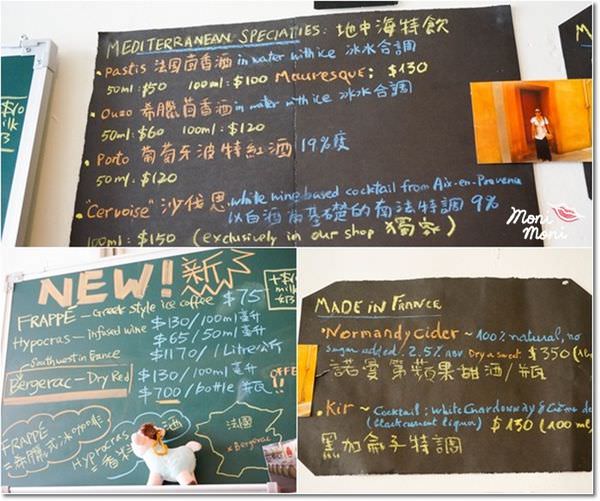 MEDITERRANEAN SPECIATIES: 地中海特飲
Pastis 法國茴香酒 in water with ice 冰水合調
50ml: $50 100ml: $100 Mauresque: $130
Ouzo 希臘茴香酒 in water with ice 冰水合調
50ml: $60 100ml: $120
Porto 葡萄牙波特紅酒 19%度
50ml: $120
"Cervoise" 沙伐思. white wine based cocktail from Aix-en-Provence
以白酒為基礎的南法特調 9%
100ml: $150 (exclusively in our shop 獨家)
Moni Moni
NEW! 新
FRAPPÉ - Greek style ice coffee $75
Hypocras - Infused wine $130/100ml 毫升
$65/50ml 毫升
Southwestin France $1170/1 Litre 公升
Bergerac - Dry Red $130/100ml 毫升
$700/bottle 瓶
OFFE
FRAPPÉ
=希臘式冰
Hypocras
酒
法國
x Bergerac
MADE IN FRANCE
Normandy Cider ~ 100% natural, no
sugar added! 2.5% ABV Dry a sweet $350
諾曼第蘋果甜酒/瓶
Kir ~ Cocktail: White Chardonnay & Crème de
(blackcurrant liquor) $130 (100 ml)
黑加侖子特調